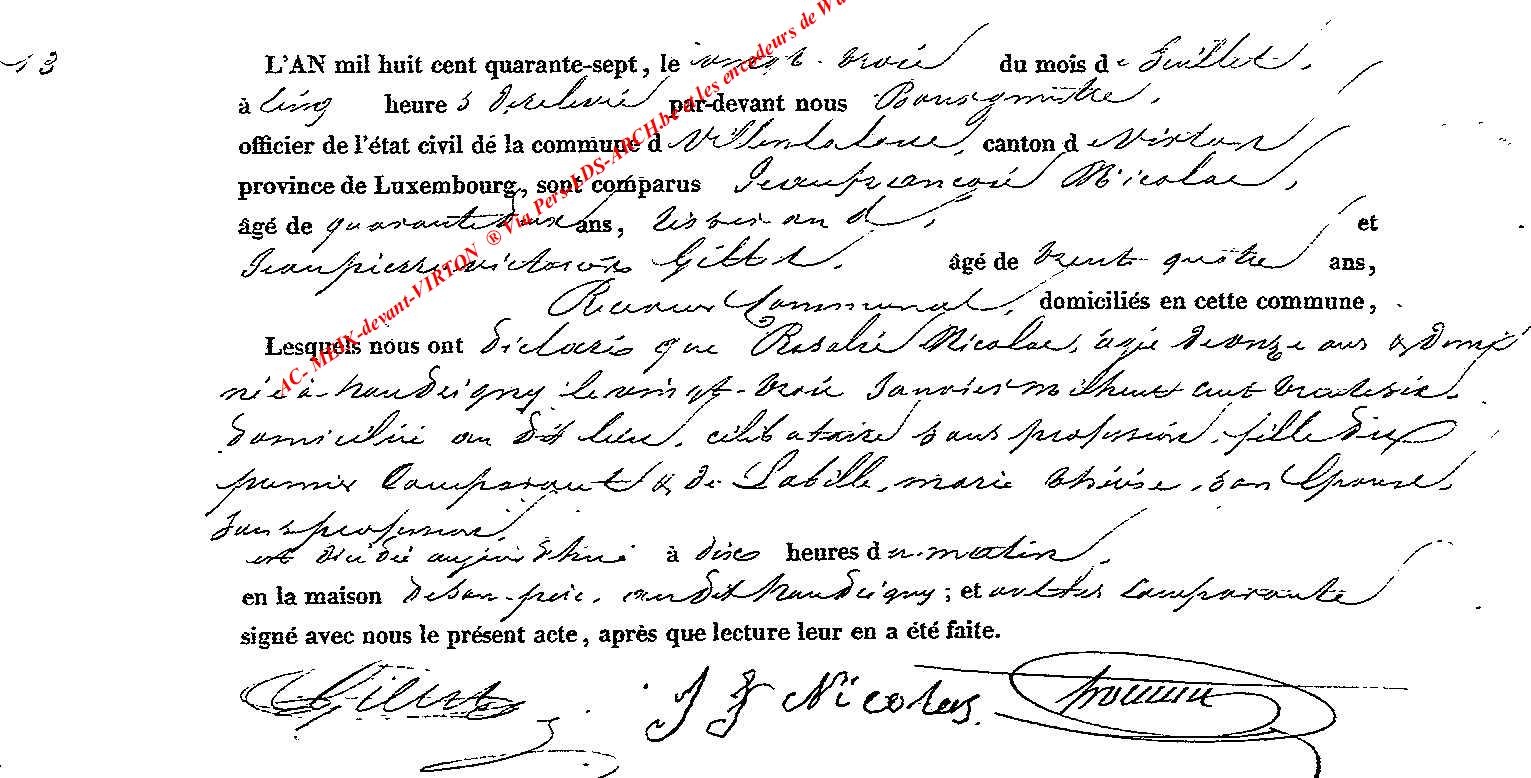 13
L'AN mil huit cent quarante-sept, le vingt-trois du mois de Juillet,
à cinq heures de relevée par-devant nous Bourgmestre,
officier de l'état civil dé la commune d Villers la loue, canton de Virton
province de Luxembourg, sont comparus Jean françois Nicolas,
âgé de quarante deux ans, tisserand, et
Jean pierre victorin Gillet, âgé de trente quatre ans,
Receveur Communal, domiciliés en cette commune,
Lesquels nous ont déclaré que Rosalie Nicolas, agée de onze ans & demi
née à houdrigny le vingt-trois Janvier mil huit cent trente six,
domiciliée au dit lieu, célibataire sans profession, fille du
premier Comparant & de Labille, marie thérèse, son Epouse,
sans profession,
est décédée aujourd'hui à dix heures du matin,
en la maison de son père, au dit houdrigny; et ont les comparants
signé avec nous le présent acte, après que lecture leur en a été faite.
Gillet J F Nicolas
AC- MEIX-devant-VIRTON ® Via Pers-LDS-ARCH.be et les encodeurs de